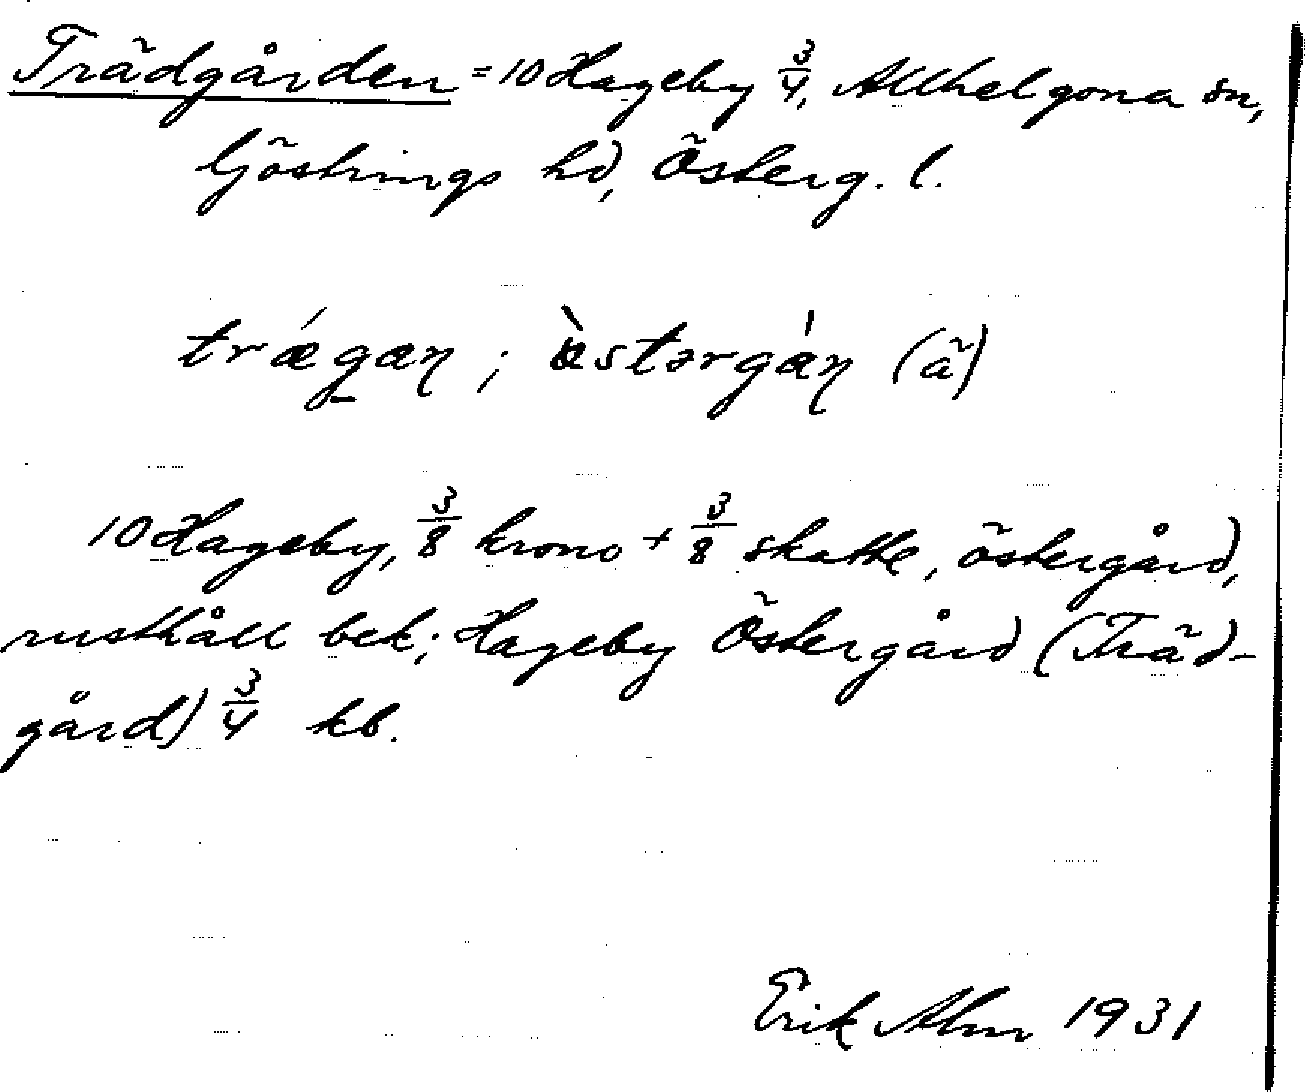 Trädgården = 10 Hageby 3/4, Allhelgona sn,
Göstrings hd, Österg. l.
trǽgæɳ ; östərgáɳ (ã)
10 Hageby, 3/8 krono + 3/8 skatte, östergård,
rusthåll bek; Hageby Östergård (Träd-
gård) 3/4 kb.
Erik Alm 1931